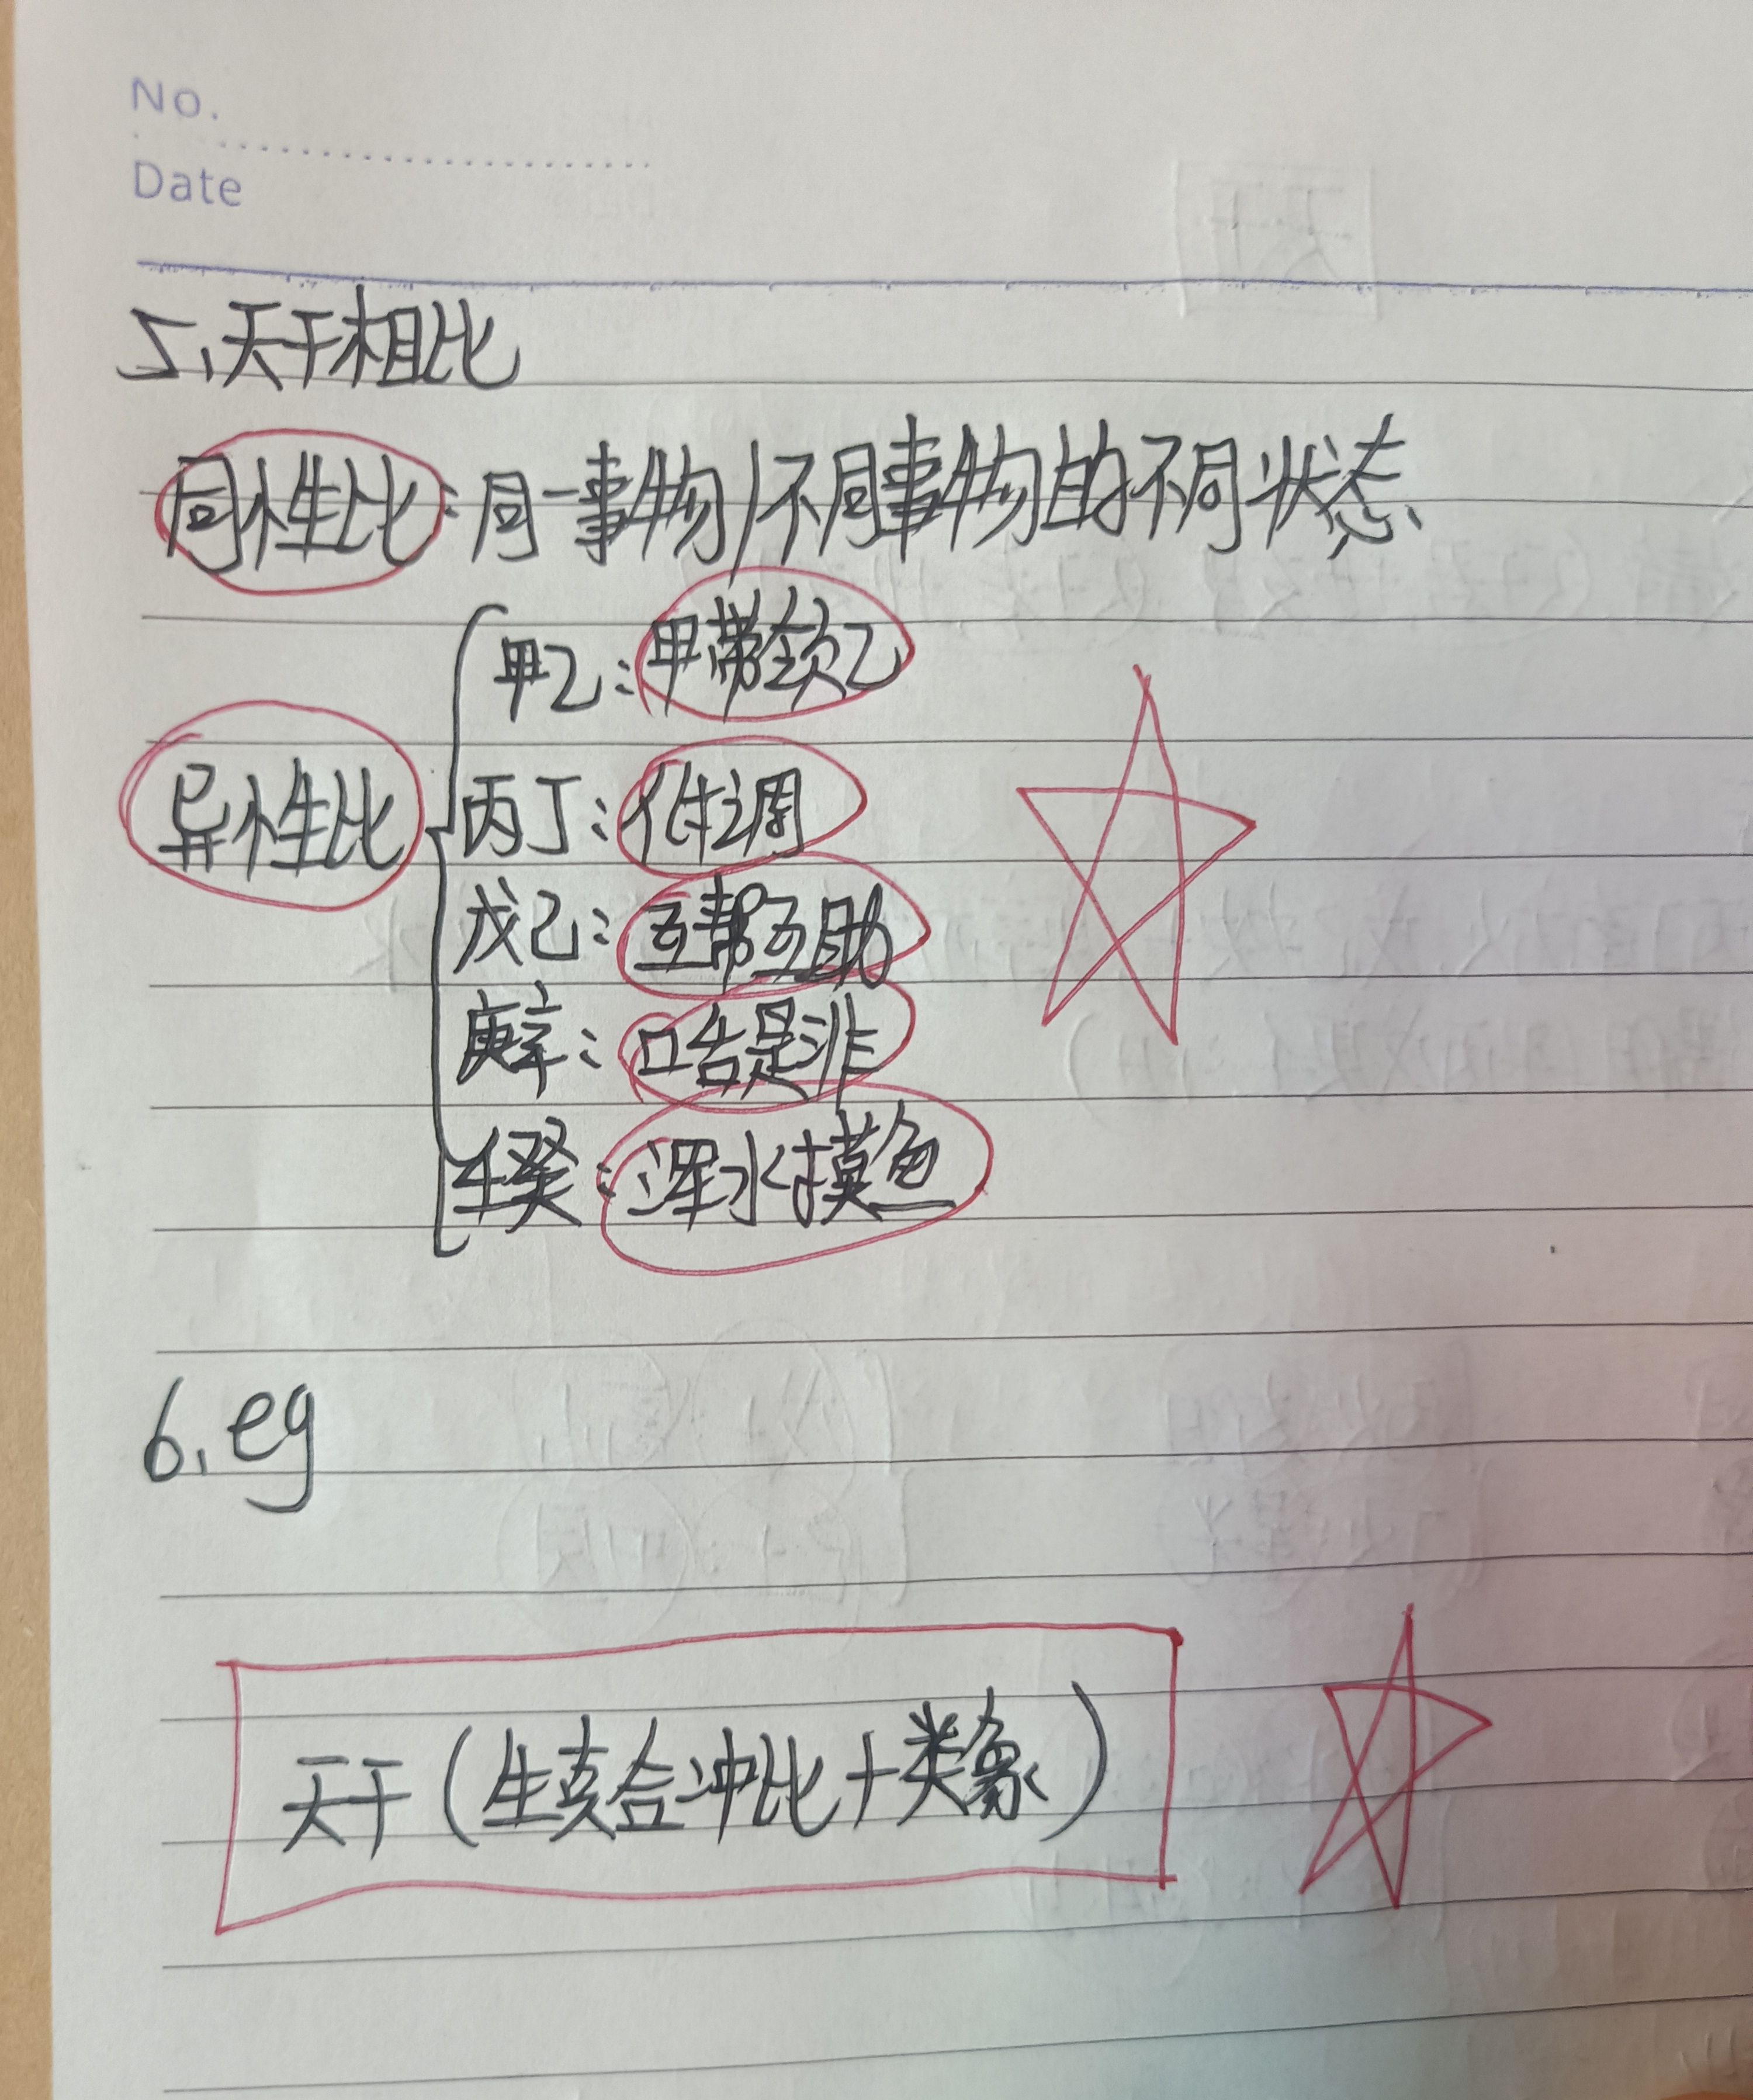 No.
Date
5、天干相比
同性比：同一事物/不同事物的不同状态、
异性比
甲乙：甲带领乙
丙丁：低调
戊己：互帮互助
庚辛：口舌是非
壬癸：浑水摸鱼
6、eg
天干（生克合冲比+类象）